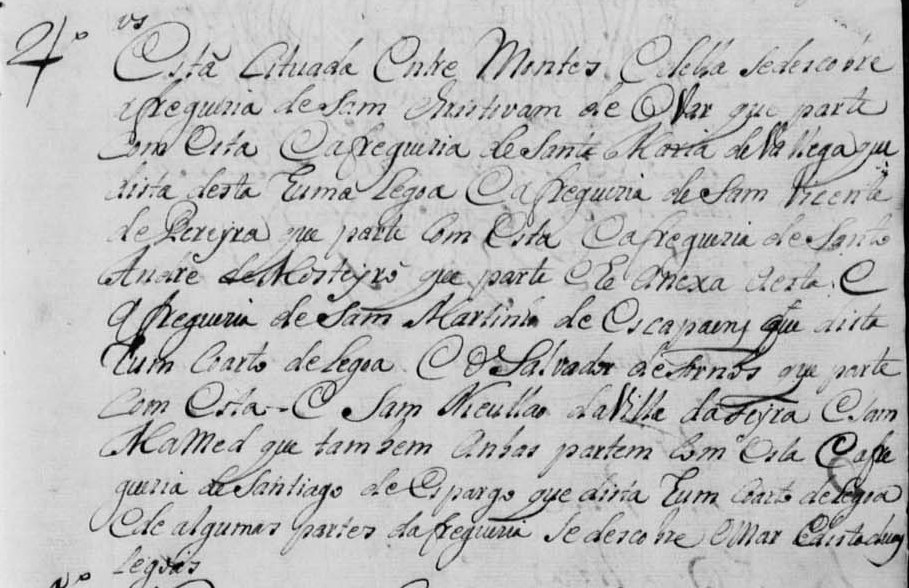 4º
Está cituada Entre Montes, E della sedescobre
afreguizia de Sam Christivam de Ovar que parte
Com Esta E afreguizia de Santa Maria de Vallega que
dista desta huma Legoa E afreguizia de Sam Vicente
de Pereyra que parte Com Esta E afreguizia de Santo
Andre de Mosteyrô que parte E he Anexa desta E
Afreguizia de Sam Martinho de Escapaens que dista
hum Coarto de Legoa E O Salvador de Fornos que parte
Com Esta E Sam Nicullao da Villa da Feyra E Sam
Mamed que tambem Anbas partem Com Esta E afre
guezia de Santiago de Espargo que dista hum Coarto de Legoa
E de algumas partes da freguizia Se descobre O Mar E dista duas
Legoas